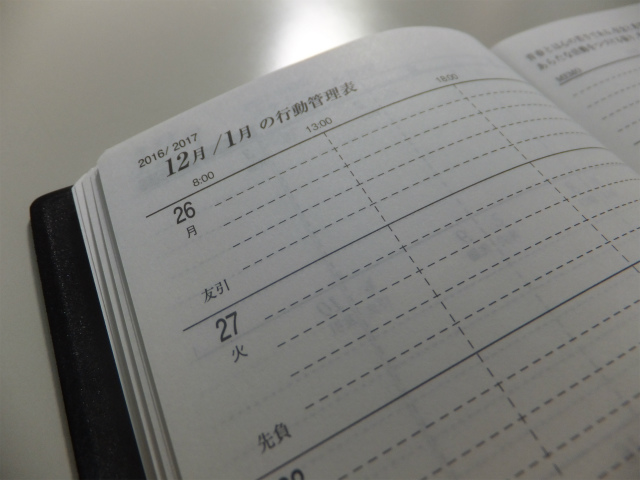 2016/2017
12月/1月 の行動管理表
8:00 13:00 18:00
26
月
友引
27
火
先負